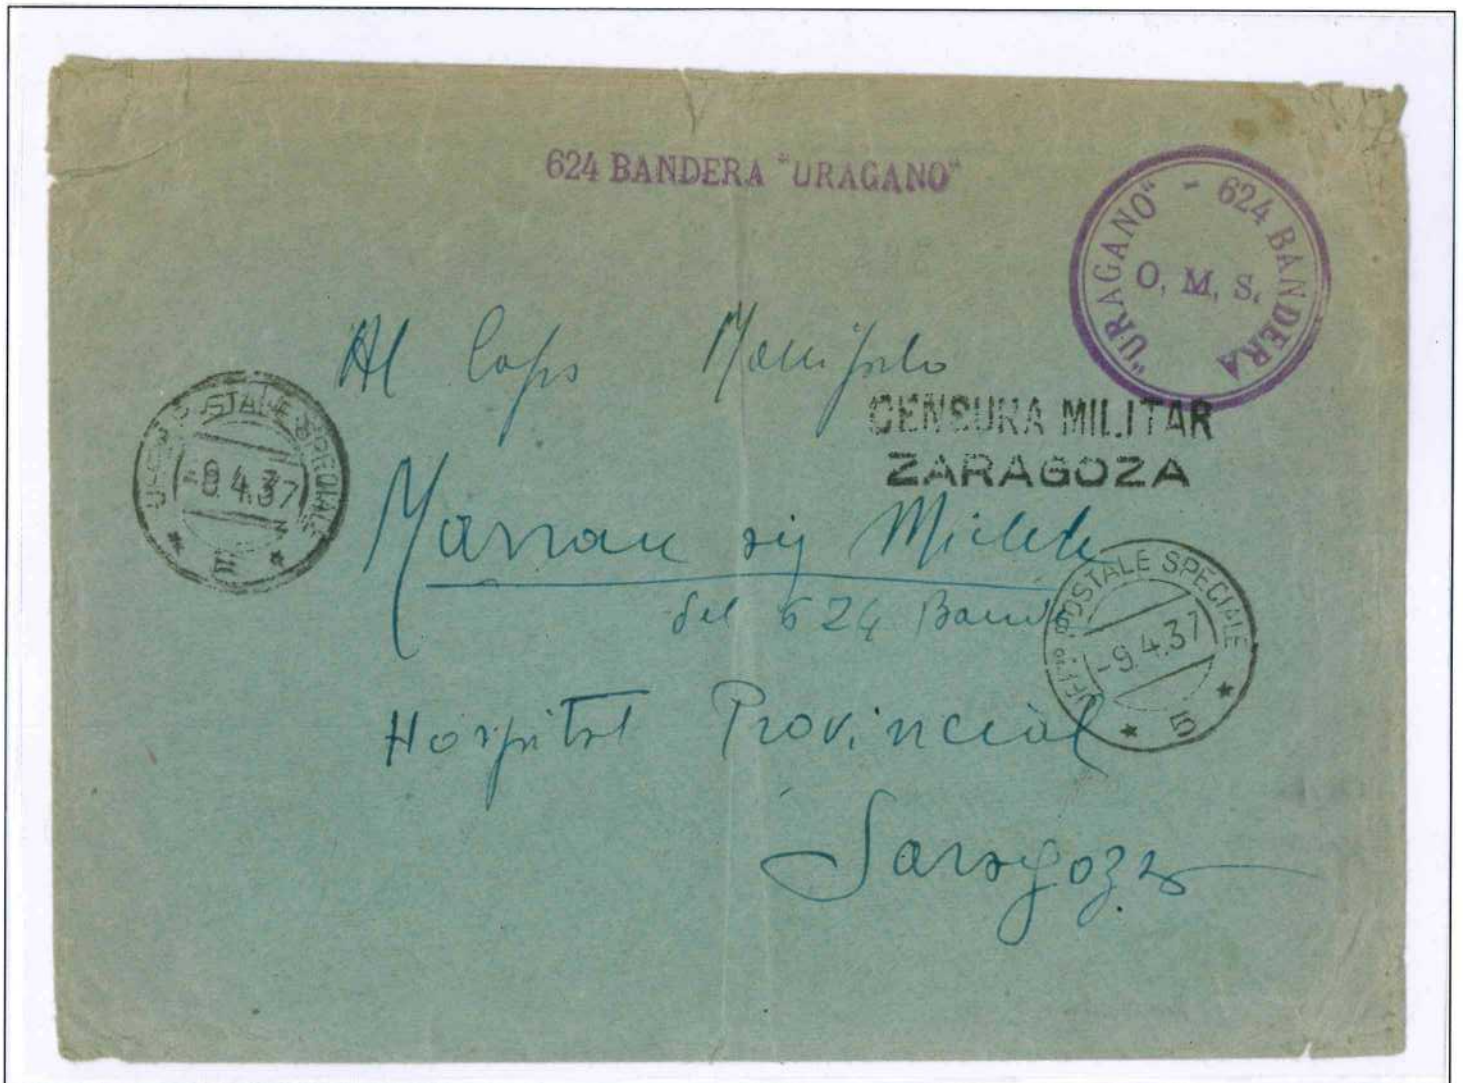 624 BANDERA "URAGANO"
"URAGANO" - 624 BANDERA
O. M. S.
Al Capo Manipolo
CENSURA MILITAR
ZARAGOZA
UFF. POSTALE SPECIALE
-8.4.37
* 5 *
sig Michele
del 624 Band
UFF. POSTALE SPECIALE
-9.4.37
* 5 *
Hospital Provincial
Saragoza